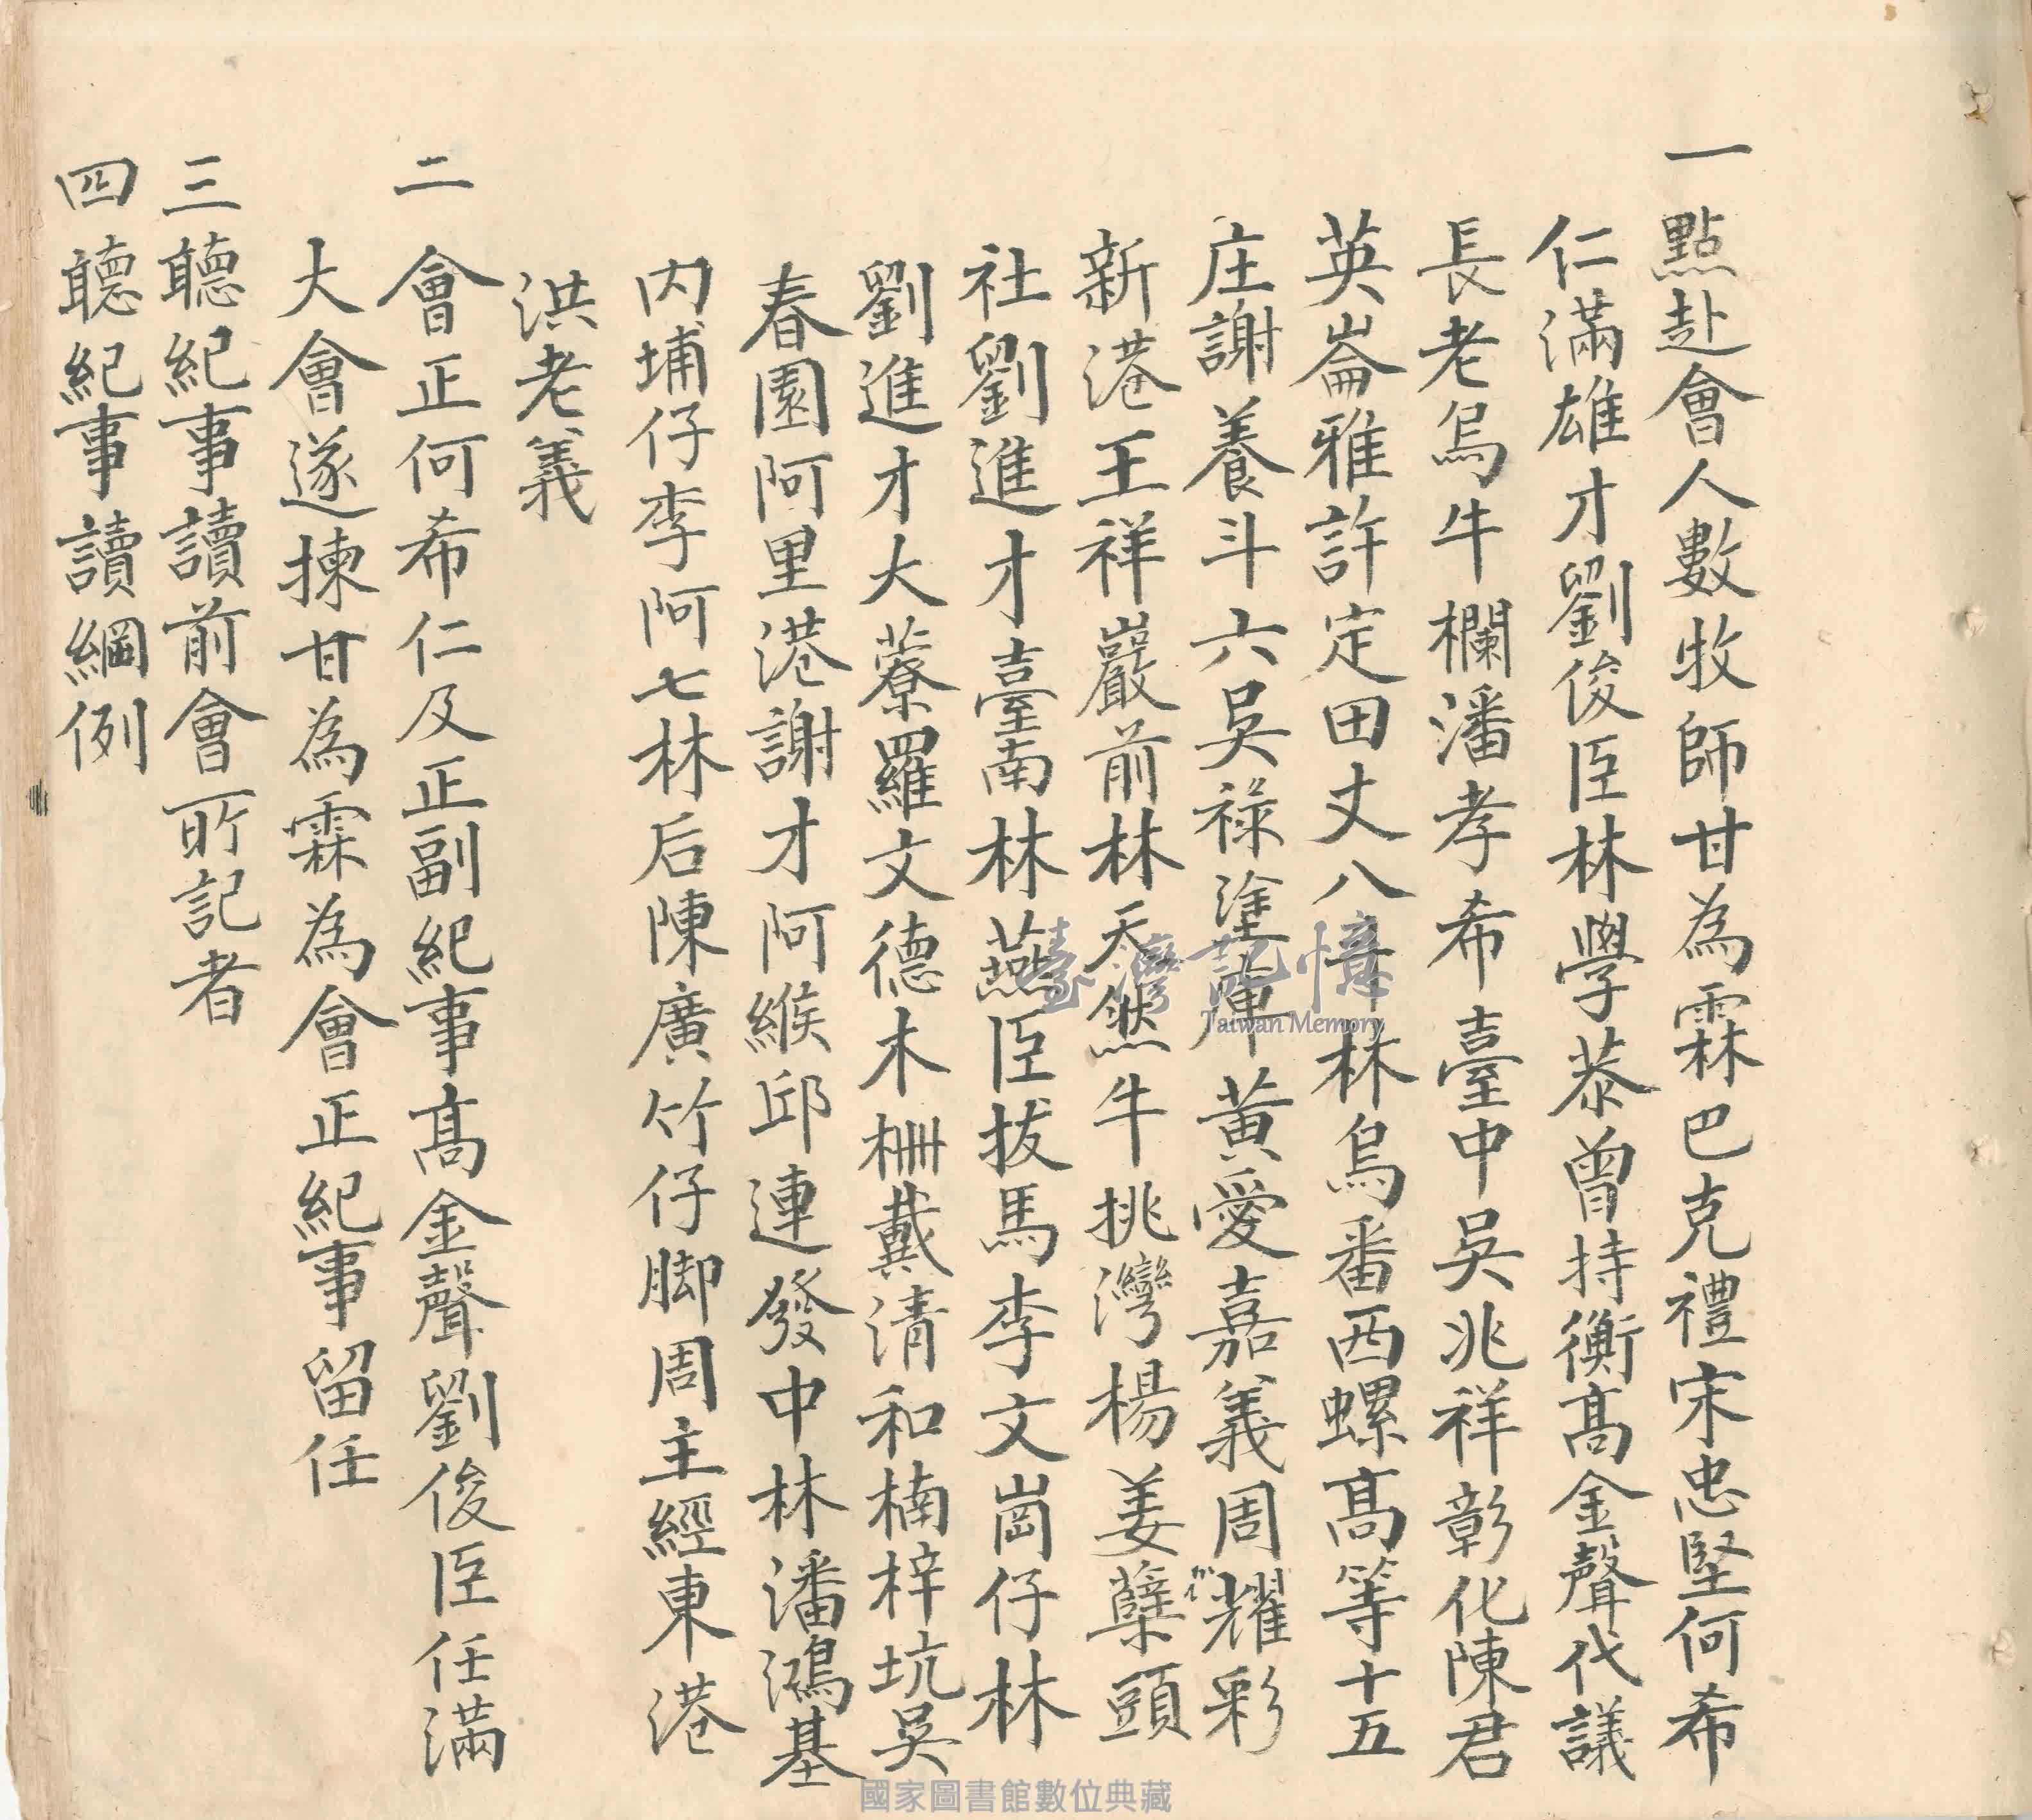 一點赴會人數牧師甘為霖巴克禮宋忠堅何希
仁滿雄才劉俊臣林學恭曾持衡髙金聲代議
長老烏牛欄潘孝希臺中吳兆祥彰化陳君
英崙雅許定田丈八林烏番西螺髙等十五
庄謝養斗六吳祿塗庫黃愛嘉義周耀彩
新港王祥巖前林天然牛挑灣楊姜蘖頭
社劉進才臺南林燕臣拔馬李文崗仔林
劉進才大藔羅文德木柵戴清和楠梓坑吳
春園阿里港謝才阿緱邱連發中林潘鴻基
内埔仔李阿七林后陳廣竹仔脚周主經東港
洪老義
二 會正何希仁及正副紀事髙金聲劉俊臣任滿
大會遂揀甘為霖為會正紀事留任
三聽紀事讀前會所記者
四聽紀事讀綱例
臺灣記憶
Taiwan Memory
國家圖書館數位典藏